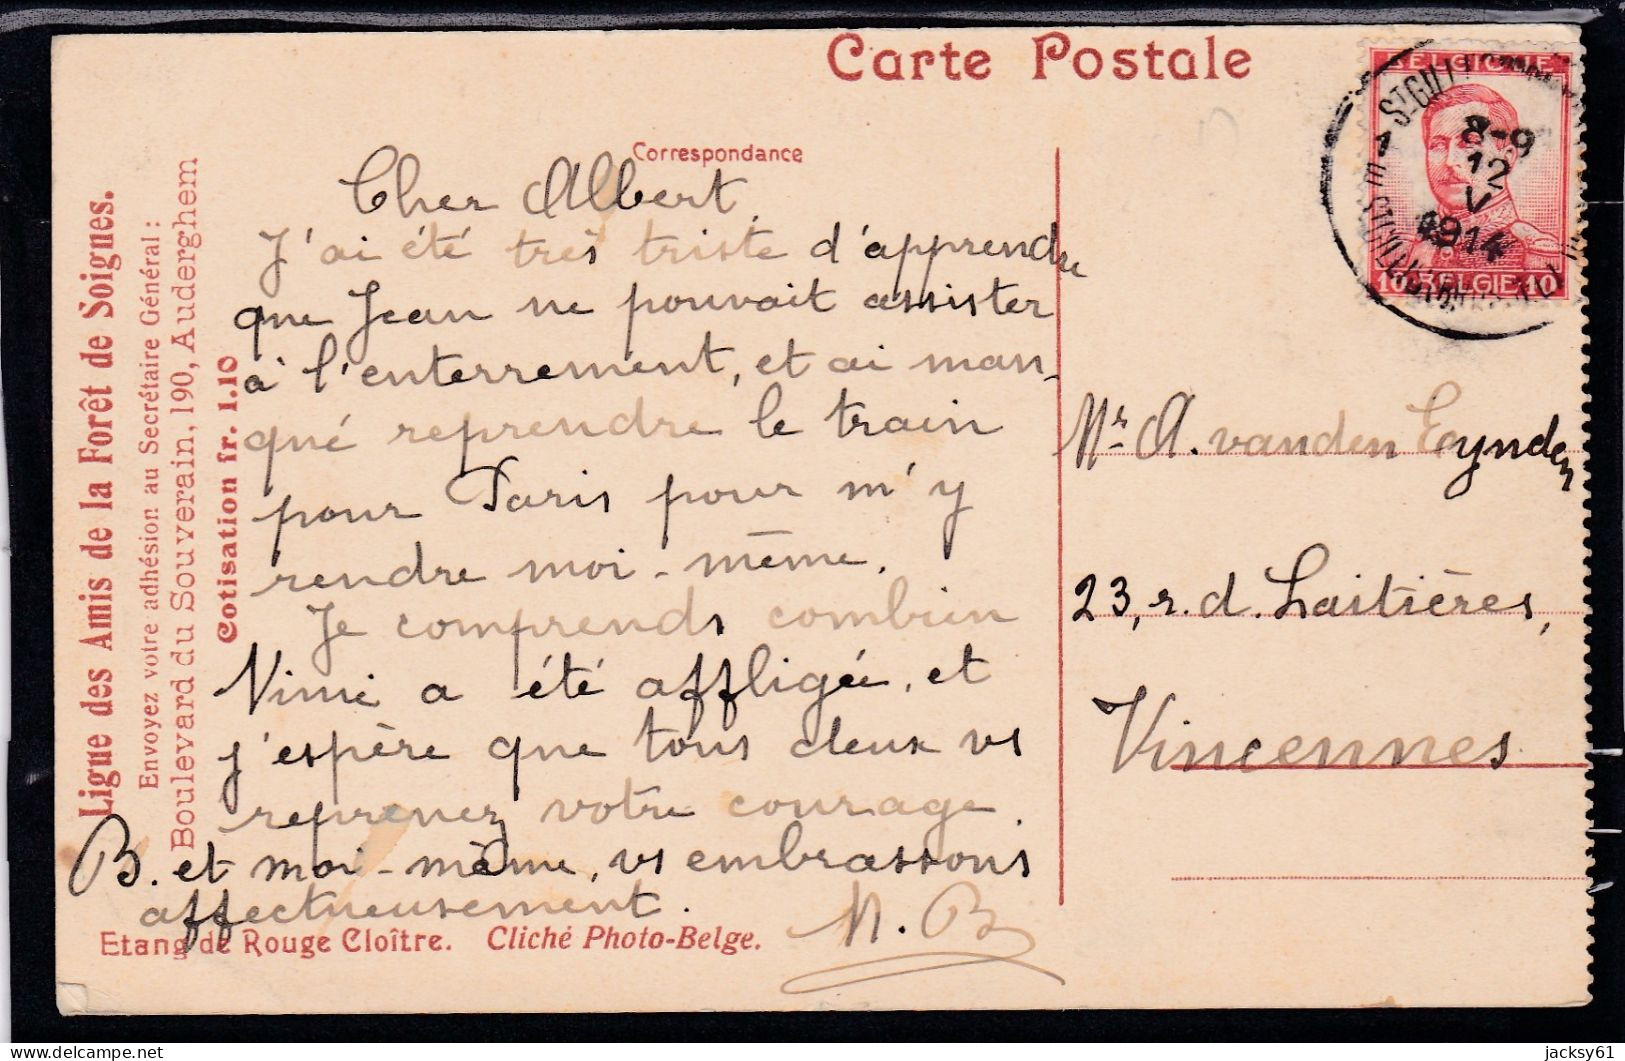 Carte Postale
Correspondance
Cher Albert,
J'ai été très triste d'apprendre
que Jean ne pouvait assister
à l'enterrement, et ai man-
qué reprendre le train
pour Paris pour m'y
rendre moi-même.
Je comprends combien
Nini a été affligée, et
j'espère que tous deux vs
reprenez votre courage.
B. et moi-même, vs embrassons
affectueusement.
N. B.
Mr A. vanden Eynden
23, r. d. Laitières,
Vincennes
Ligue des Amis de la Forêt de Soignes.
Envoyez votre adhésion au Secrétaire Général :
Boulevard du Souverain, 190, Auderghem
Cotisation fr. 1.10
Etang de Rouge Cloître. Cliché Photo-Belge.
BELGIQUE
10 BELGIE 10
8-9
12
V
1914
jacksy61